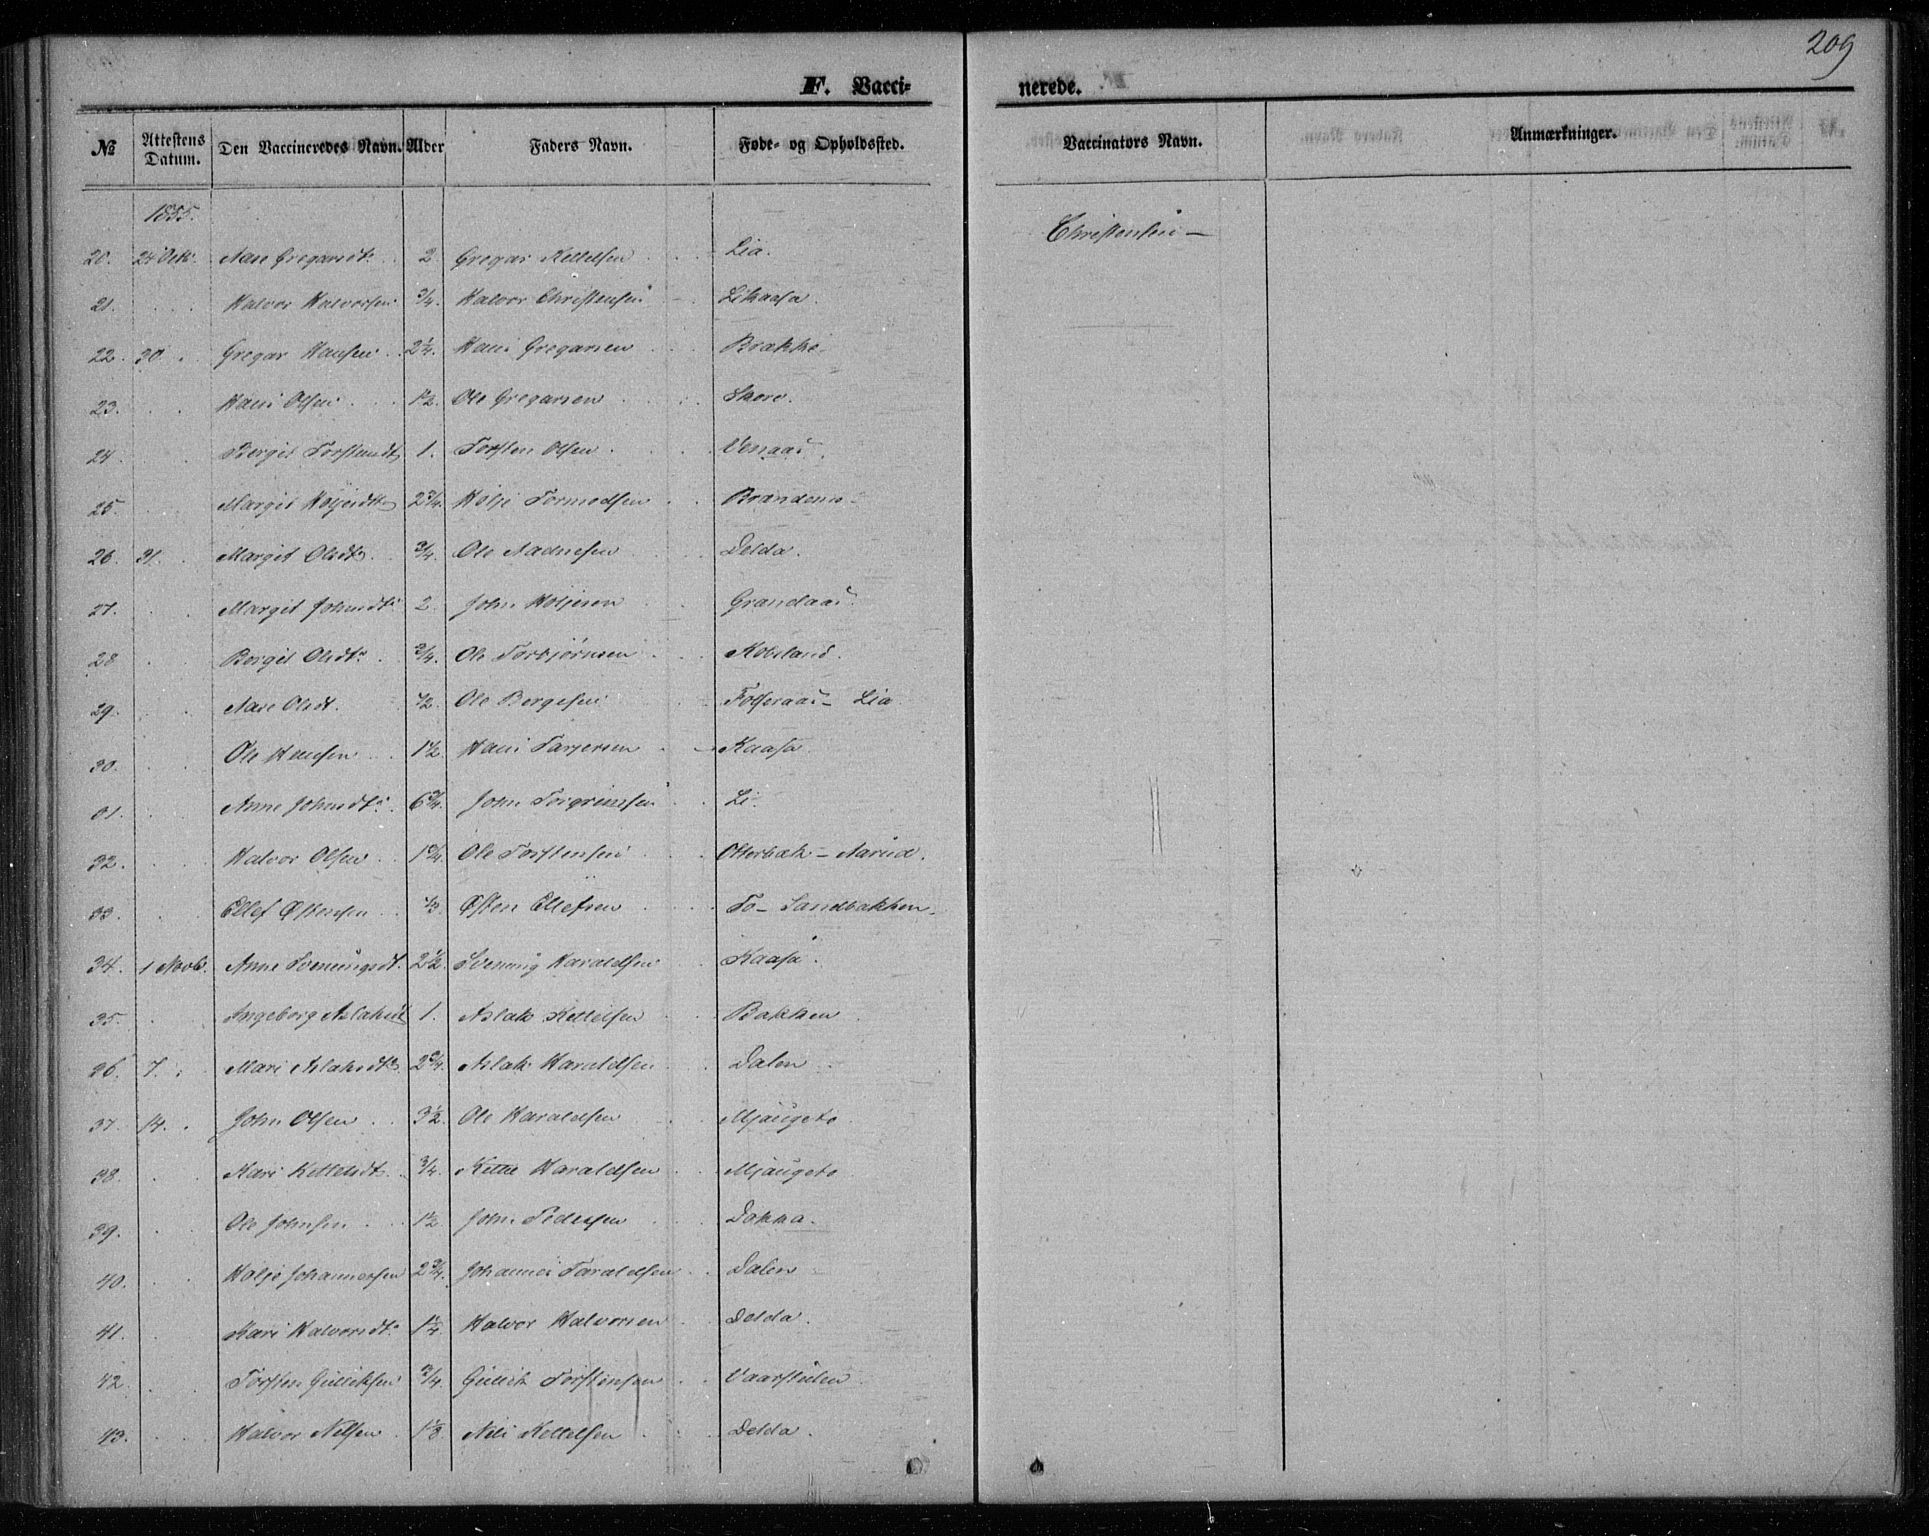 209
F. Vacci-
nerede.
№ Attestens Datum. Den Vaccineredes Navn. Alder Faders Navn. Føde- og Opholdssted. Vaccinators Navn. Anmærkninger.
1855.
20. 24 Oct. Aase Gregarsdt. 2 Gregar Kettelsen Lia. Christensen —
21. Halvor Halvorsen 3/4. Halvor Christensen Likaasa.
22. 30 Gregar Hansen 2 1/4. Hans Gregarsen Brække.
23. Hans Olsen 1/2. Ole Gregarsen Skore.
24. Bergit Torstensdt 1. Torsten Olsen Venaas.
25. Margit Høljesdt 2 3/4. Hølje Tormodsen Brandsmo
26. 31. Margit Olsdt. 3/4. Ole Aadnesen Delda.
27. Margit Johnsdt. 2. John Høljesen Grandaas.
28 Bergit Olsdt. 3/4. Ole Torbjørnsen
29. Aase Olsdt. 1/2. Ole Bergesen Folseraas – Lia
30. Ole Hansen 1 1/2. Hans Tarjersen Kaasa.
31. Anne Johnsdt. 6 3/4. John Torgrimsen Li.
32. Halvor Olsen 1 3/4. Ole Torstensen Otterbæk – Aarud.
33. Ellef Østensen 1/3. Østen Ellefsen To – Sandbakken.
34. 1 Novb. Anne Sveinungsdt. 2 1/2. Svenung Haraldsen Kaasa.
35. Ingeborg Aslaksdt 1. Aslak Kettelsen Bakken
36. 7. Mari Aslaksdt. 2 3/4. Aslak Haraldsen Dalen
37. 14. John Olsen 3 1/2. Ole Haraldsen Mjaugeto
38. Kari Kettelsdt. 3/4. Kettel Haraldsen Mjaugeto
39. Ole Johnsen 1 1/2. John Pedersen Dokka.
40. Hølje Johannessen 2 3/4. Johannes Taraldsen Dalen
41. Kari Halvorsdt. 1 1/4. Halvor Halvorsen Delda.
42. Torsten Gulliksen 3/4. Gullik Torstensen Vaarstulen
43. Halvor Nilsen 1 1/3. Nils Kettelsen Delda.